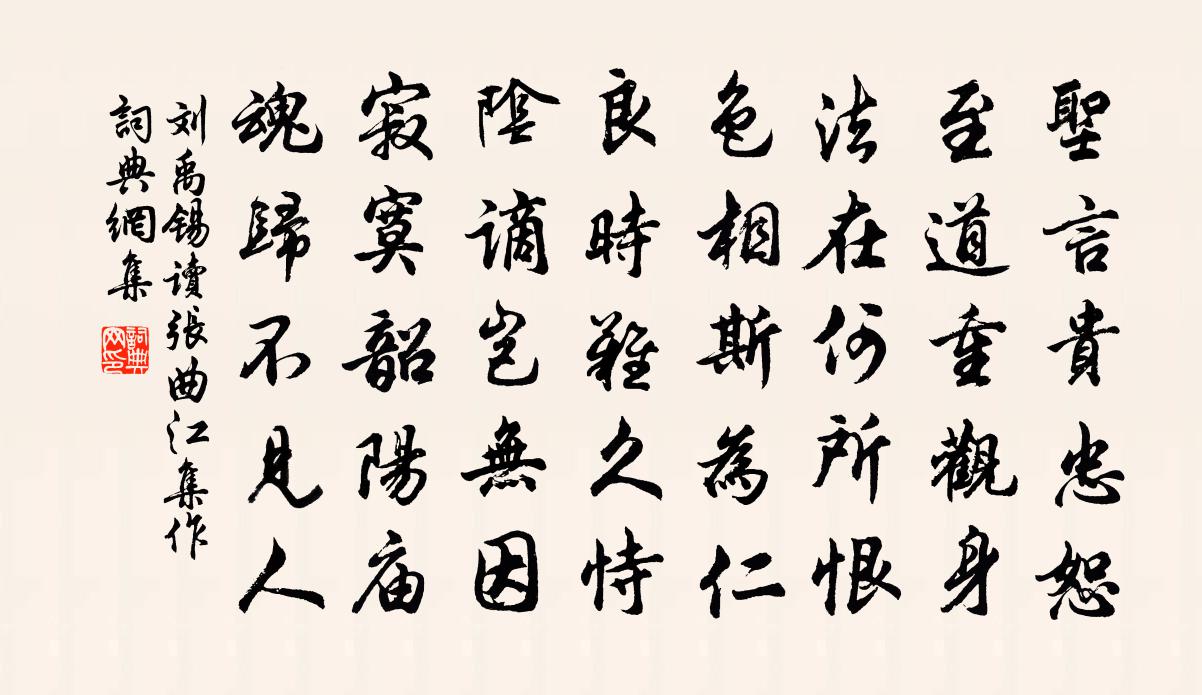 聖言貴忠恕
至道重觀身
法在何所恨
色相斯為仁
良時難久恃
陰謫豈無因
寂寞韶陽庙
魂歸不見人
刘禹錫讀張曲江集作
詞典網集
詞典网印